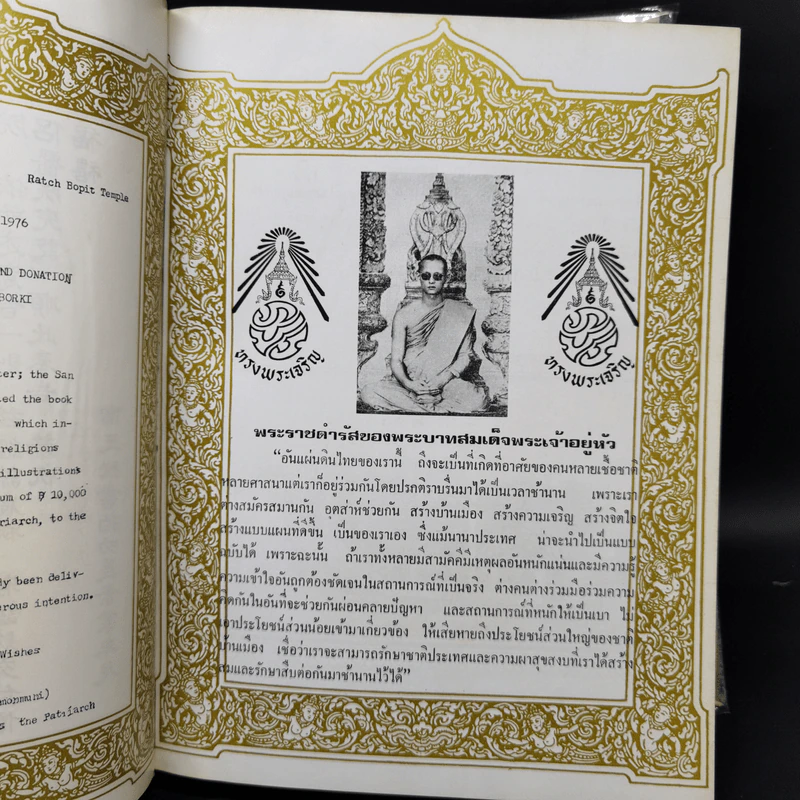 Ratch Bopit Temple
1976
ND DONATION
BORKI
ter; the San
ted the book
which in-
religions
illustrations
um of ฿ 10,000
riarch, to the
dy been deliv-
erous intention.
Wishes
monmuni)
the Patriarch
ทรงพระเจริญ
ทรงพระเจริญ
พระราชดำรัสของพระบาทสมเด็จพระเจ้าอยู่หัว
“อันแผ่นดินไทยของเรานี้ ถึงจะเป็นที่เกิดที่อาศัยของคนหลายเชื้อชาติ
หลายศาสนาแต่เราก็อยู่ร่วมกันโดยปรกติราบรื่นมาได้เป็นเวลาช้านาน เพราะเรา
ต่างสมัครสมานกัน อุตส่าห์ช่วยกัน สร้างบ้านเมือง สร้างความเจริญ สร้างจิตใจ
สร้างแบบแผนที่ดีขึ้น เป็นของเราเอง ซึ่งแม้นานาประเทศ น่าจะนำไปเป็นแบบ
ฉบับได้ เพราะฉะนั้น ถ้าเราทั้งหลายมีสามัคคีมีเหตุผลอันหนักแน่นและมีความรู้
ความเข้าใจอันถูกต้องชัดเจนในสถานการณ์ที่เป็นจริง ต่างคนต่างร่วมมือร่วมความ
คิดกันในอันที่จะช่วยกันผ่อนคลายปัญหา และสถานการณ์ที่หนักให้เป็นเบา ไม่
เอาประโยชน์ส่วนน้อยเข้ามาเกี่ยวข้อง ให้เสียหายถึงประโยชน์ส่วนใหญ่ของชาติ
บ้านเมือง เชื่อว่าเราจะสามารถรักษาชาติประเทศและความผาสุขสงบที่เราได้สร้าง
สมและรักษาสืบต่อกันมาช้านานไว้ได้”